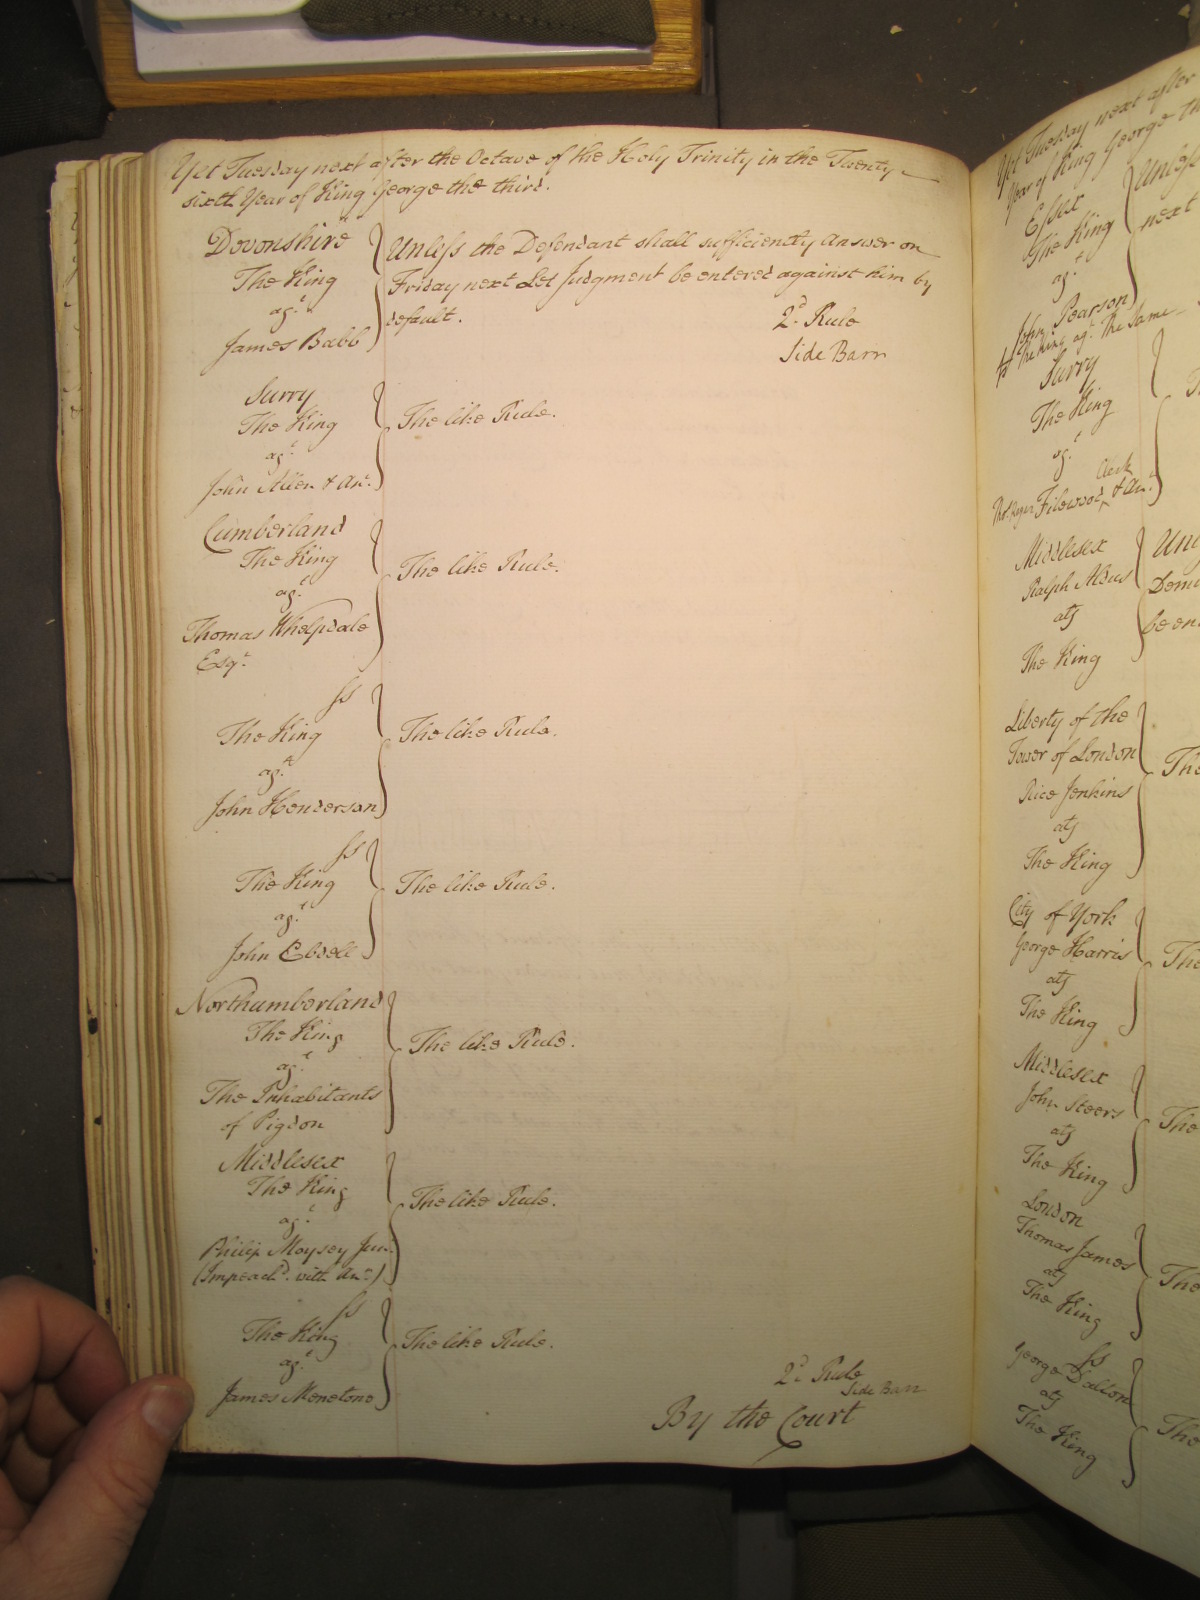 Yet Tuesday next after the Octave of the Holy Trinity in the Twenty
sixth Year of King George the third.
Devonshire
The King
agt.
James Babb
Unless the Defendant shall sufficiently Answer on
Friday next Let Judgment be entered against him by
default.
2d. Rule
Side Barr
Surry
The King
agt.
John Allen & Anr.
The like Rule.
Cumberland
The King
agt.
Thomas Whelpdale
Esqr.
The like Rule.
ss
The King
agt.
John Henderson
The like Rule.
ss
The King
agt.
John Ebdell
The like Rule.
Northumberland
The King
agt.
The Inhabitants
of Pigdon
The like Rule.
Middlesex
The King
agt.
Philip Moysey Junr.
(Impeach'd. with Anr.)
The like Rule.
ss
The King
agt.
James Menetone
The like Rule.
2d. Rule
Side Barr
By the Court
Yet Tuesday next after
Year of King George th
Essex
The King
agt.
John Pearson
The King agt. the Same
Unless
next
Surry
The King
agt.
Clerk
Filewood & Anr.
Middlesex
Ralph Aldus
ats
The King
Unl
Demu
be en
Liberty of the
Tower of London
Rice Jenkins
ats
The King
The
City of York
George Harris
ats
The King
The
Middlesex
John Steers
ats
The King
The
London
Thomas James
ats
The King
The
ss
George Dalton
ats
The King
The